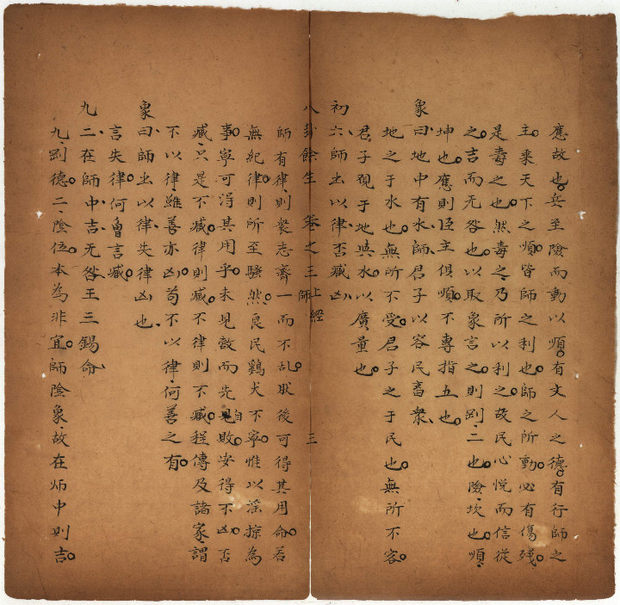 應故也兵至險而動以順有丈人之德有行師之
主乘天下之順皆師之利也師之所動必有傷殘
是毒之也然毒之乃所以利之故民心悅而信從
之吉而无咎也以取象言之則剛二也險坎也順
坤也應則臣主俱順不專指五也
象曰地中有水師君子以容民畜衆
地之于水也無所不受君子之于民也無所不容
君子觀于地與水以廣量也
初六師出以律否臧凶
八卦餘生 卷之三 上經 師 三
師有律則衆志齊一而不亂狀後可得其用命若
無紀律則所至騷然良民鷄犬不寧惟以滛掠為
事寧可淂其用乎未見敵而先見自敗安得不凶否
臧只是不臧律則臧不律則不臧程傳及諸家謂
不以律雖善亦凶苟不以律何善之有
象曰師出以律失律凶也
言失律何曾言臧
九二在師中吉无咎王三錫命
九剛德二陰位本為非宜師陰象故在師中則吉